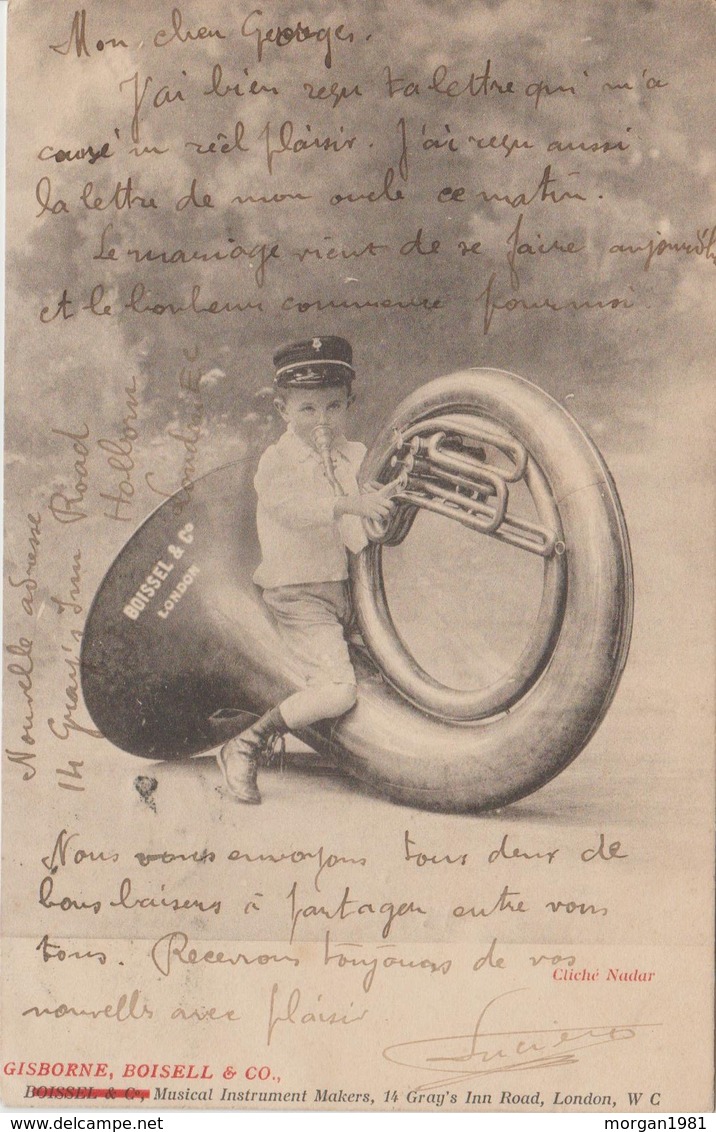 Mon cher Georges.
J'ai bien reçu ta lettre qui m'a
causé un réel plaisir. J'ai reçu aussi
la lettre de mon oncle ce matin.
Le mariage vient de se faire aujourd'h
et le bonheur commence pour moi.
Nouvelle adresse
14 Gray's Inn Road
Holborn
London EC
BOISSEL & Co
LONDON
Nous vous envoyons tous deux de
bons baisers à partager entre vous
tous. Recevrons toujours de vos
nouvelles avec plaisir
Lucien
Cliché Nadar
GISBORNE, BOISELL & CO.,
BOISSEL & Co, Musical Instrument Makers, 14 Gray's Inn Road, London, W C
morgan1981